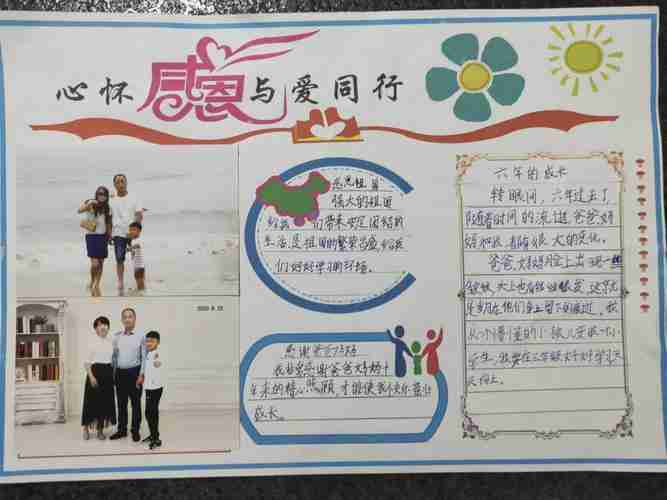 心怀感恩与爱同行
感恩祖国
强大的祖国
给我们带来安定团结的
生活,是祖国的繁荣昌盛给我
们好好学习的环境。
2020.8.23
感谢爸爸妈妈
我非常感谢爸爸妈妈十
年来的精心照顾,才能使我不失健
成长。
六年的成长
转眼间,六年过去了,
随着时间的流逝爸爸妈
妈和我都有很大的变化。
爸爸、妈妈脸上出现一些
皱纹,头上也有些
是岁月在他们身上留下的痕迹,我
从个懵懂的小孩儿变成一名小
学生,我要在三年级好好学习天
天向上。